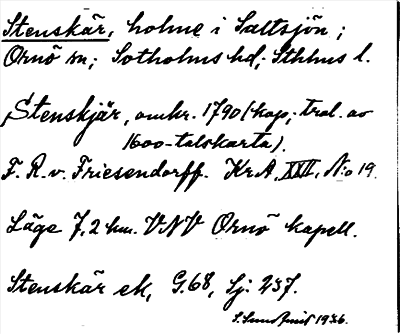 Stenskär, holme i Saltsjön;
Ornö sn; Sotholms hd; Sthlms l.
Stenskjär, omkr. 1790 (kop. tral. av
1600-talskarta).
F. R. v. Friesendorff. Kr.A. XXII, No 19.
Läge 7,2 km. VNV Ornö kapell.
Stenskär ek, G.68, Sj: 237.
1936.